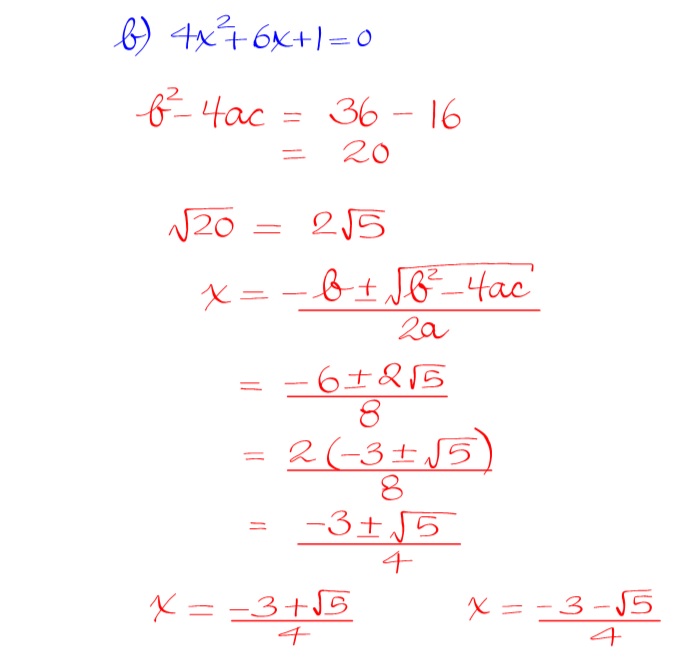 b) 4x²+6x+1=0
b²-4ac = 36 - 16
= 20
√20 = 2√5
x = (-b ± √(b²-4ac))/(2a)
= (-6 ± 2√5)/8
= 2(-3 ± √5)/8
= (-3 ± √5)/4
x = (-3+√5)/4 x = (-3-√5)/4